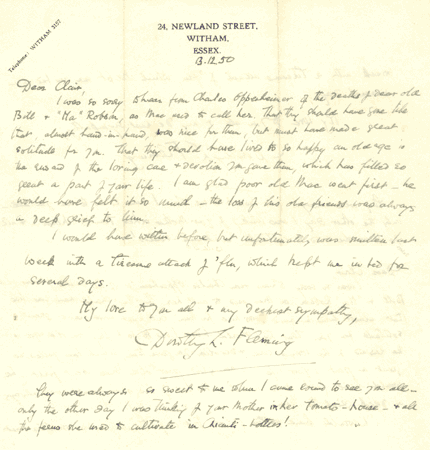 Telephone: WITHAM 3157
24, NEWLAND STREET,
WITHAM,
ESSEX.
13.12.50
Dear Clair,
I was so sorry to hear from Charles Oppenheimer of the deaths of dear old
Bill & "Ma" Robbin, as Mac used to call her. That they should have gone like
that, almost hand-in-hand, was nice for them, but must have made great
solitude for you. That they should have lived to so happy an old age is
the reward of the loving care & devotion you gave them, which has filled so
great a part of your life. I am glad poor old Mac went first – he
would have felt it so much – the loss of his old friends was always
a deep grief to him.
I would have written before, but unfortunately was smitten last
week with a tiresome attack of 'flu, which kept me in bed for
several days.
My love to you all & my deepest sympathy,
Dorothy L. Fleming
They were always so sweet to me when I came round to see you all –
only the other day I was thinking of your Mother in her tomato-house – & all
the ferns she used to cultivate in Chianti-bottles!